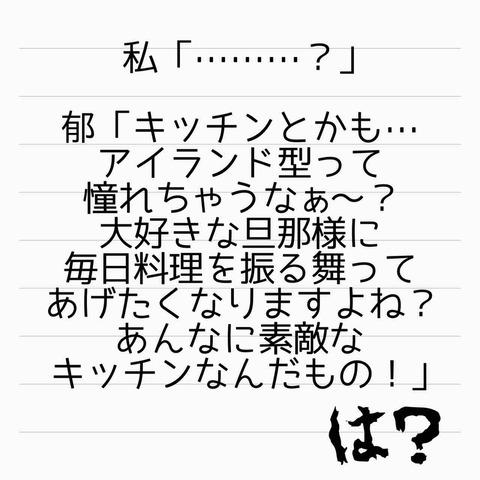 私「………？」
郁「キッチンとかも…
アイランド型って
憧れちゃうなぁ〜？
大好きな旦那様に
毎日料理を振る舞って
あげたくなりますよね？
あんなに素敵な
キッチンなんだもの！」
は？